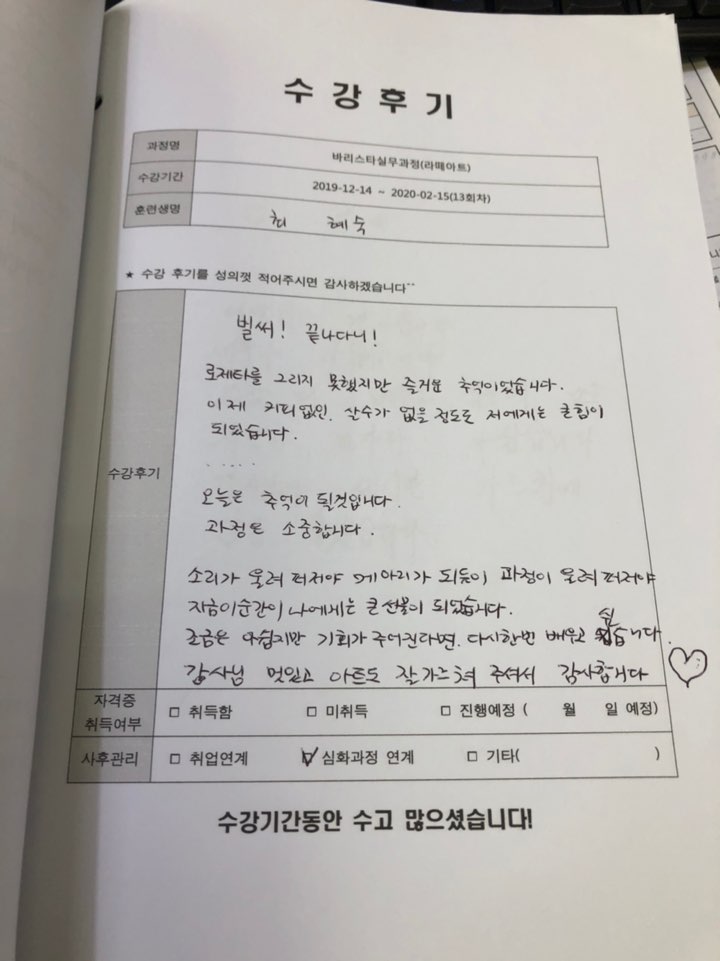 수강후기
과정명 바리스타실무과정(라떼아트)
수강기간 2019-12-14 ~ 2020-02-15(13회차)
훈련생명 최 혜숙
★ 수강 후기를 성의껏 적어주시면 감사하겠습니다^^
수강후기
벌써! 끝나다니!
로제타를 그리지 못했지만 즐거운 추억이었습니다.
이제 커피없인. 살수가 없을 정도로 저에게는 큰힘이
되었습니다.
.....
오늘은 추억이 될것입니다.
과정은 소중합니다.
소리가 울려 퍼저야 메아리가 되듯이 과정이 울려 퍼저야
지금이순간이 나에게는 큰 선물이 되었습니다.
조금은 아쉽지만 기회가 주어진다면. 다시한번 배우고 싶습니다.
감사님 멋있고 아트도 잘 가르쳐 주셔서 감사합니다 ♡
자격증 취득여부 □ 취득함 □ 미취득 □ 진행예정 ( 월 일 예정)
사후관리 □ 취업연계 ☑ 심화과정 연계 □ 기타( )
수강기간동안 수고 많으셨습니다!